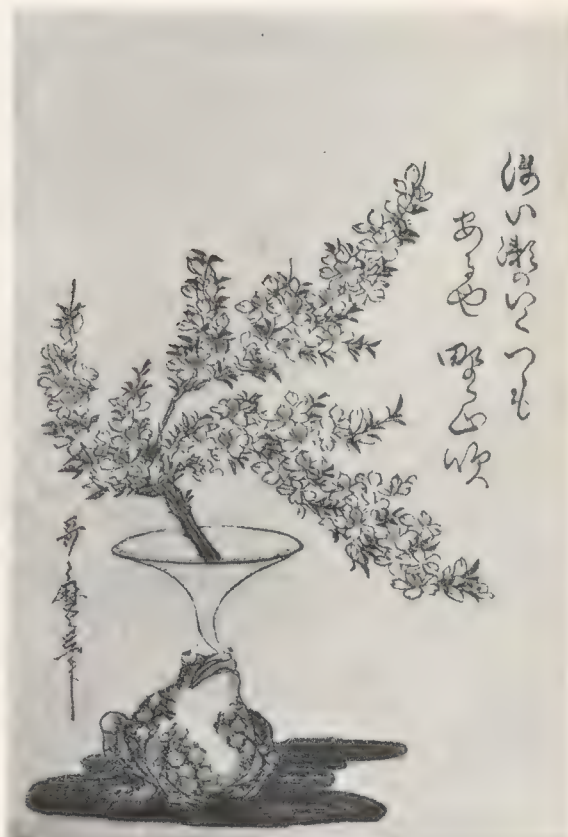 浅い瀬のいくつも
あるや 野山吹
哥麿筆